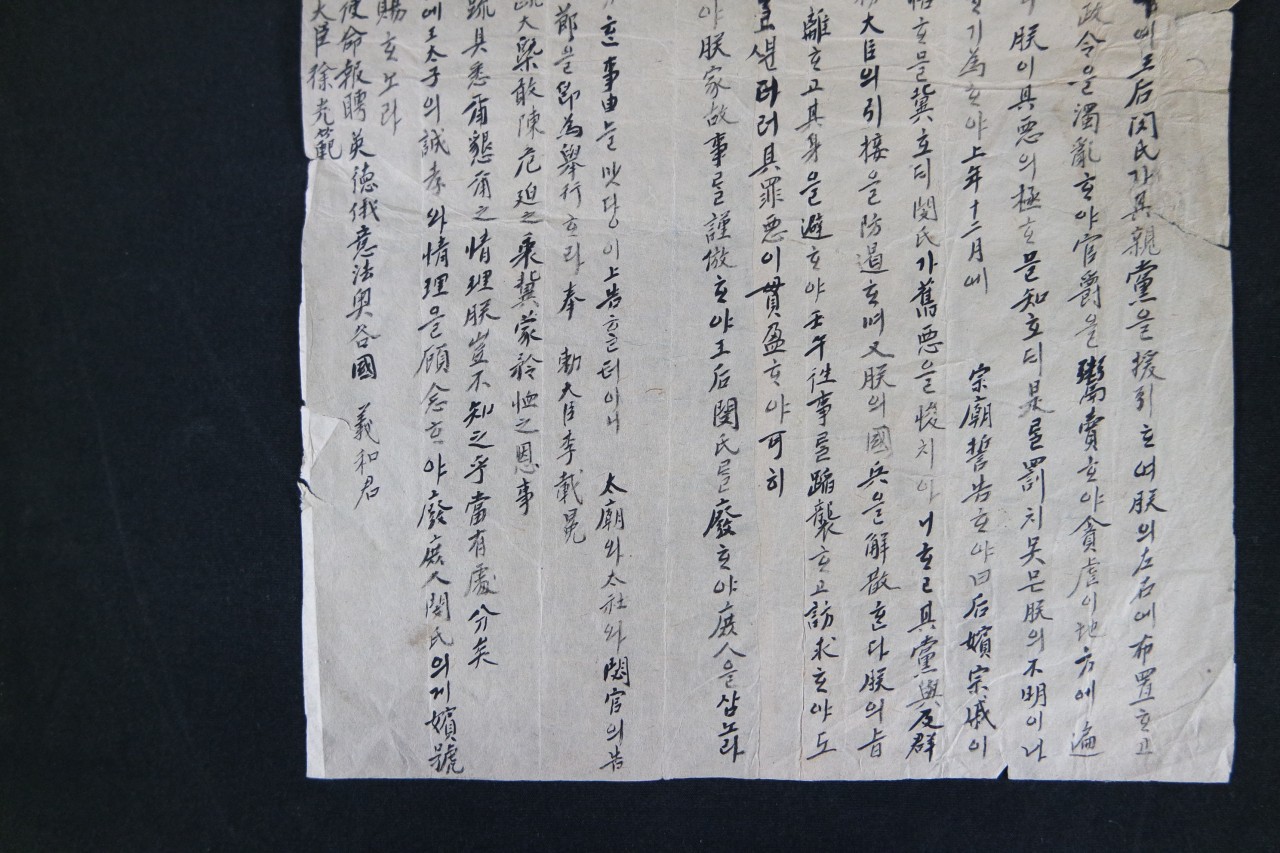 에王后閔氏가其親黨을援引ᄒᆞ여朕의左右에布置ᄒᆞ고
政令을濁亂ᄒᆞ야官爵을鬻賣ᄒᆞ야貪虐이地方에遍
朕이其惡의極ᄒᆞ믈知ᄒᆞ디是ᄅᆞᆯ罰치못믄朕의不明이나
기為ᄒᆞ야上年十二月에 宗廟誓告ᄒᆞ야曰后嬪宗戚이
ᄒᆞ믈冀ᄒᆞ디閔氏가舊惡을悛치아니ᄒᆞ고其黨與及群
大臣의引接을防遏ᄒᆞ며又朕의國兵을解散ᄒᆞᆫ다朕의旨
離ᄒᆞ고其身을避ᄒᆞ야壬午往事를蹈襲ᄒᆞ고訪求ᄒᆞ야도
ᄲᅮᆫ더러其罪惡이貫盈ᄒᆞ야可히
야朕家故事를謹倣ᄒᆞ야王后閔氏를廢ᄒᆞ야庶人을삼노라
ᄒᆞᆫ事由는맛당이上告ᄒᆞᆯ터이니 太廟와太社와閟宮의告
節을卽為舉行ᄒᆞ라奉 勅大臣李載冕
疏大槩敢陳危迫之衷冀蒙矜恤之恩事
疏具悉爾懇爾之情理朕豈不知之乎當有處分矣
에王太子의誠孝와情理을顧念ᄒᆞ야廢庶人閔氏의게嬪號
賜ᄒᆞ노라
使命報聘英德俄意法奧各國 義和君
大臣徐光範